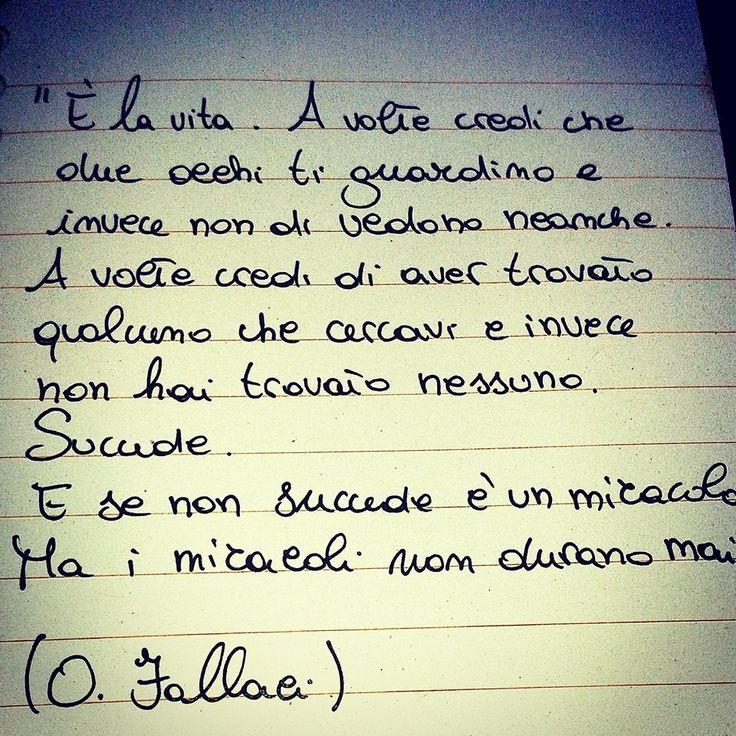 "È la vita. A volte credi che
due occhi ti guardino e
invece non di vedono neanche.
A volte credi di aver trovato
qualcuno che cercavi e invece
non hai trovato nessuno.
Succede.
E se non succede è un miracolo
Ma i miracoli non durano mai
(O. Fallaci)